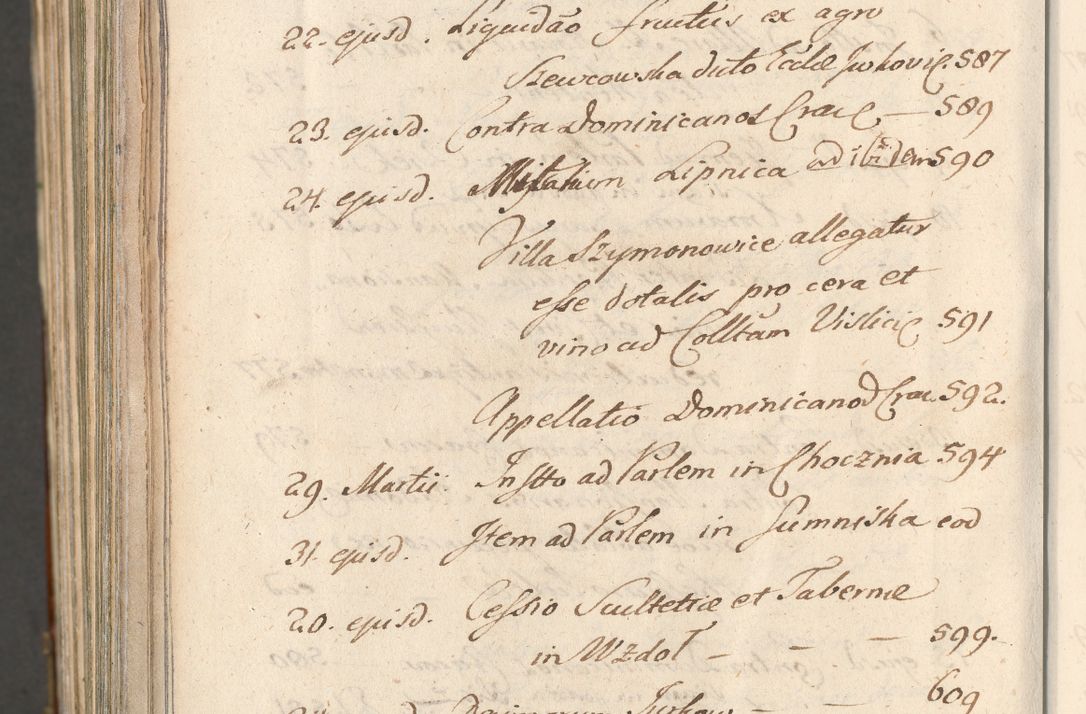 22. ejusd. Liquidão fructus ex agro
Szewcowska dicto Eccłæ Jwkovic 587
23. ejusd. Contra Dominicanos Crac — 589
24. ejusd. Lipnica ad ibidem 590
Villa Szymonowice allegatur
esse dotalis pro cera et
vino ad Colltam Vislic 591
Appellatio Dominicanoꝝ Crac. 592.
29. Martii. Instto ad Parlem in Chocznia 594
31. ejusd. Item ad Parlem in Sumniska eod
20. ejusd. Cessio Scultetiæ et Tabernæ
in Wzdoł — — — 599.
Jurkow — — 609